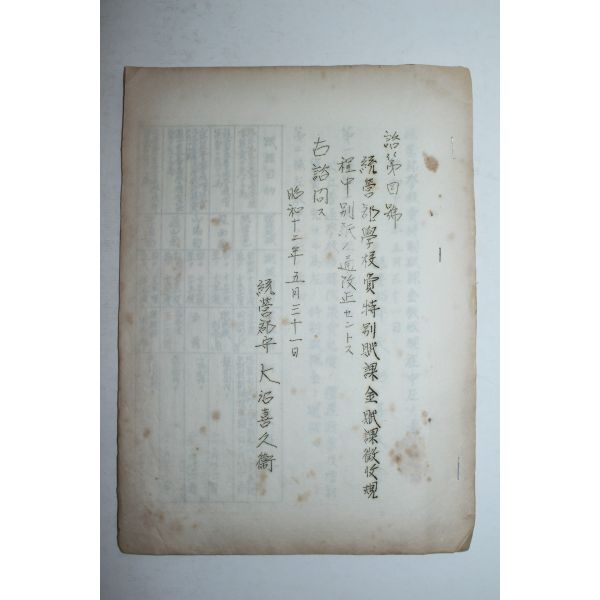 諮第四號
統營郡學校費特別賦課金賦課徵收規
程中別紙ノ通改正セントス
右諮問ス
昭和十二年五月三十一日
統營郡守 大 喜久衛